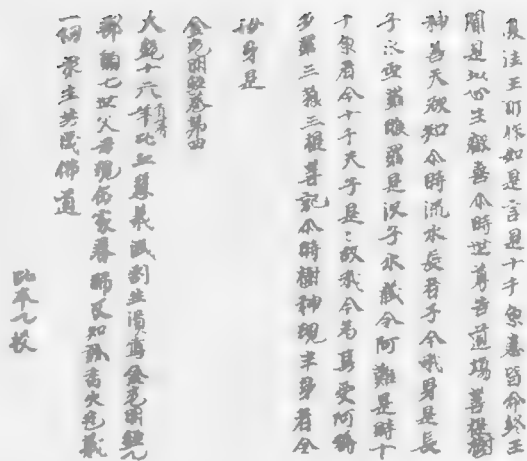 法王所作如是言是十千魚悉皆命終王
聞是以心生歡喜尒時世尊告道場菩提樹
神善天欲知尒時流水長者子今我身是長
子水空羅睺羅是次子水藏今阿難是時十
千魚者今十千天子是〻故我今為其受阿耨
多羅三藐三菩提記尒時樹神現半身者今
汝身是
金光明經卷第四
大統十六年比丘慧義減割生資寫金光明經一
部願七世父母現在家眷師友知識香火邑義
一切眾生共成佛道
比本一校